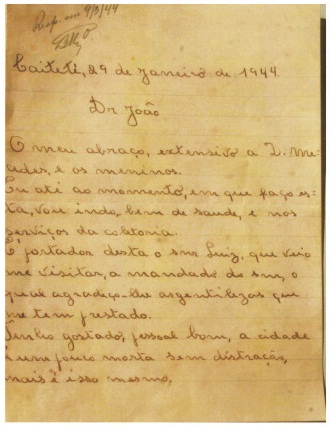 Resp. em 9/3/44
Caiteti, 29 de janeiro de 1944.
Dr João
O meu abraço, extensivo a D. Me-
cedes, e os meninos.
Eu até ao momento, em que faço es-
ta, vou indo, bem de saude, e nos
serviços da coletoria.
É portador desta o snr Luiz, que veio
me visitar, a mandado do snr, o
qual agradeço-lhe as gentilezas que
me tem prestado.
Tenho gostado, pessoal bom, a cidade
é um pouco morta sem distração,
mais é isso mesmo,